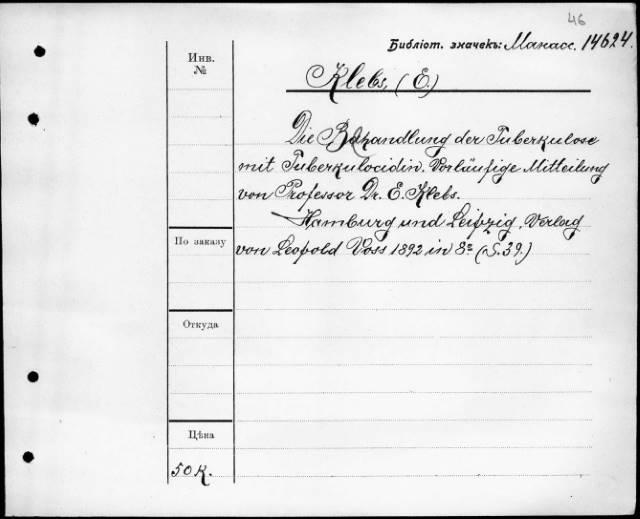 46
Библіот. значекъ: Манасс. 14624.
Инв. №
Klebs, (E.)
Die Behandlung der Tuberkulose
mit Tuberkulocidin. Vorläufige Mitteilung
von Professor Dr. E. Klebs.
Hamburg und Leipzig, Verlag
По заказу
von Leopold Voss 1892 in 8º (S. 39.)
Откуда
Цѣна
50 к.